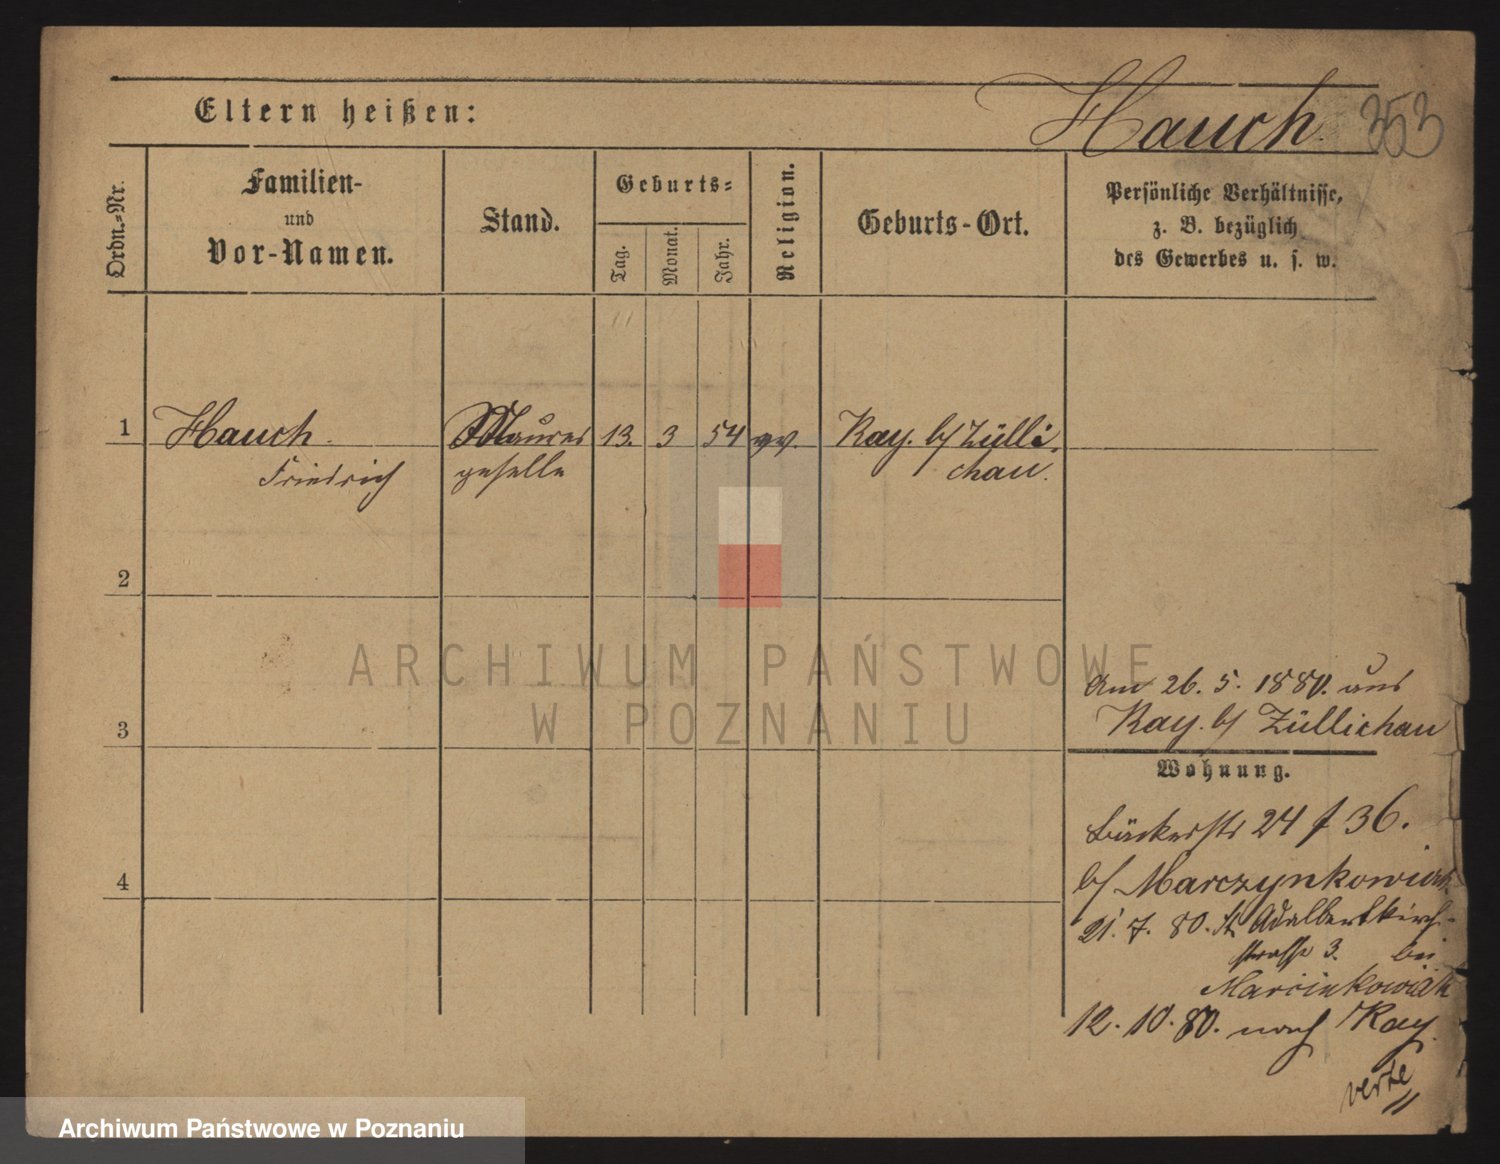 Eltern heißen:
Hauch. 353
Ordn.-Nr.
Familien-
und
Vor-Namen.
Stand.
Geburts-
Tag.
Monat.
Jahr.
Religion.
Geburts-Ort.
Persönliche Verhältnisse,
z. B. bezüglich
des Gewerbes u. s. w.
1 Hauch. Maurer 13. 3 54 ev. Kay. b/ Zülli
Friedrich geselle chau.
2
3
4
Am 26. 5. 1880. aus
Kay. b/ Züllichau
Wohnung.
Bäckerstr 24 f 36.
b/ Marczynkowiak
21. 7. 80. St Adalbertkirch-
strasse 3. bei
Marcinkowiak
12. 10. 80. nach Kay.
verte
ARCHIWUM PAŃSTWOWE
W POZNANIU
Archiwum Państwowe w Poznaniu